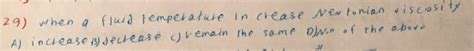 29) when a fluid temperature in crease Newtonian viscosity
A) increase B) decrease C) remain the same D) Non of the above